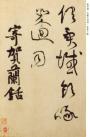 俱異域飲啄
幾回同
寄賀蘭銛